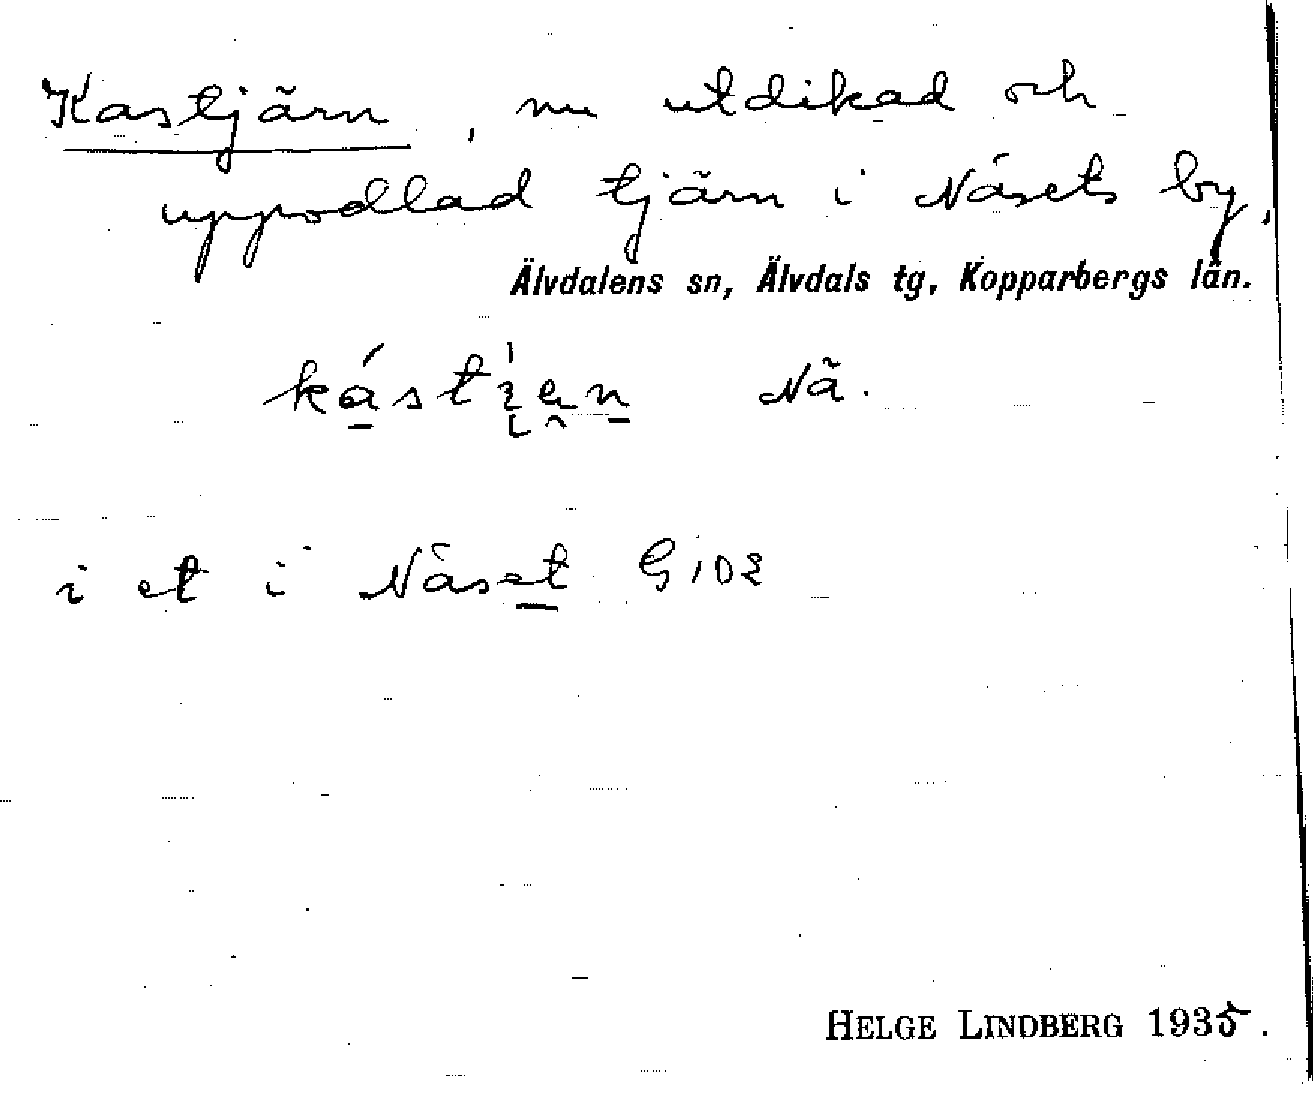 Kastjärn, nu utdikad och
uppodlad tjärn i Näsets by,
Älvdalens sn, Älvdals tg, Kopparbergs län.
Nä.
i et i Näset G102
HELGE LINDBERG 1935.